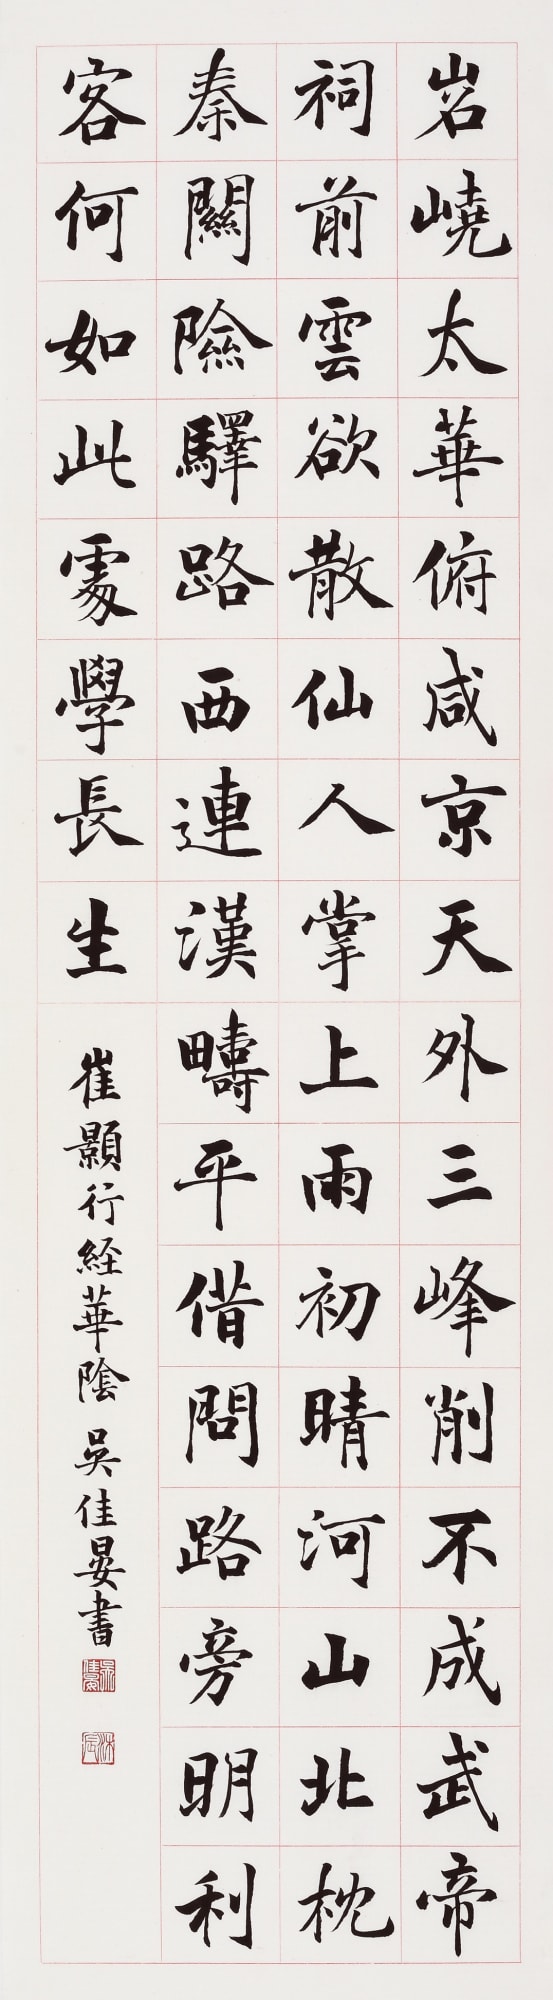 岧嶢太華俯咸京天外三峰削不成武帝
祠前雲欲散仙人掌上雨初晴河山北枕
秦關險驛路西連漢疇平借問路旁明利
客何如此處學長生
崔顥行經華陰 吳佳晏書